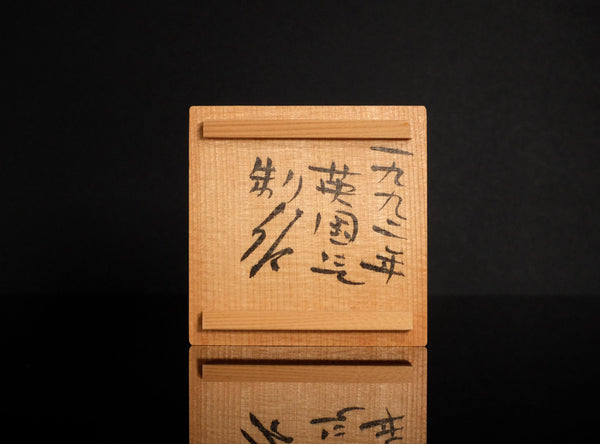 一九九二年
英国にて
制作